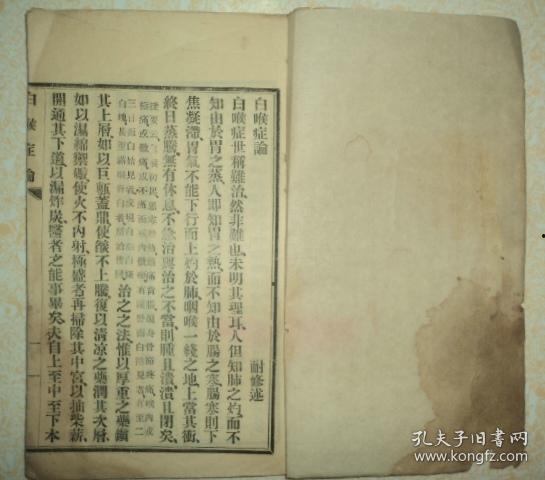 白喉症論
耐修述
白喉症世稱難治然非難也未明其理耳人但知肺之灼而不
知由於胃之蒸人即知胃之熱而不知由於腸之寒腸寒則下
焦凝滯胃氣不能下行而上灼於肺咽喉一綫之地上當其衝
終日蒸騰無有休息不急治與治之不當則腫且潰潰且閉矣
治之之法惟以厚重之藥鎮
其上層如以巨甑蓋鼎使𦦨不上騰復以清凉之藥潤其次層
如以濕綿禦礮使火不內射極盛者再掃除其中宮以抽柴薪
開通其下道以漏炸炭醫者之能事畢矣夫自上至中至下本
白喉症論
一
孔夫子旧书网
book.kongfz.com